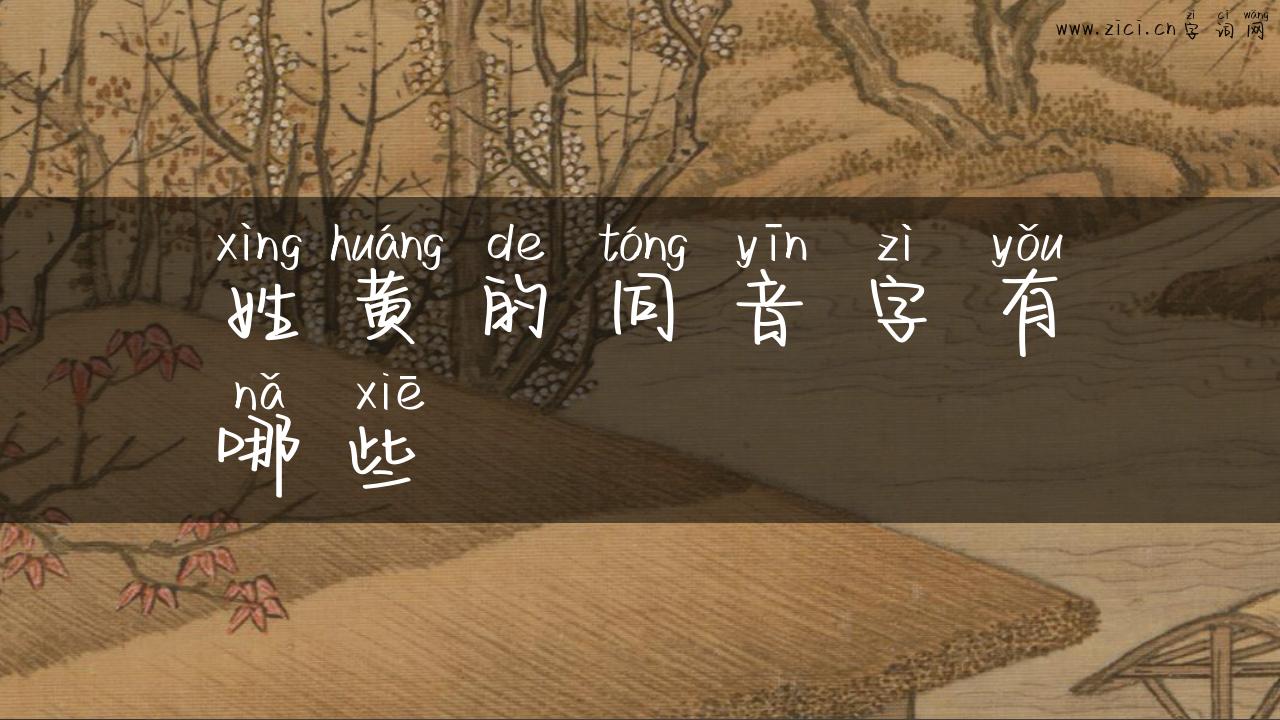 zì cí wǎng
www.zici.cn字词网
xìng huáng de tóng yīn zì yǒu
姓黄的同音字有
nǎ xiē
哪些